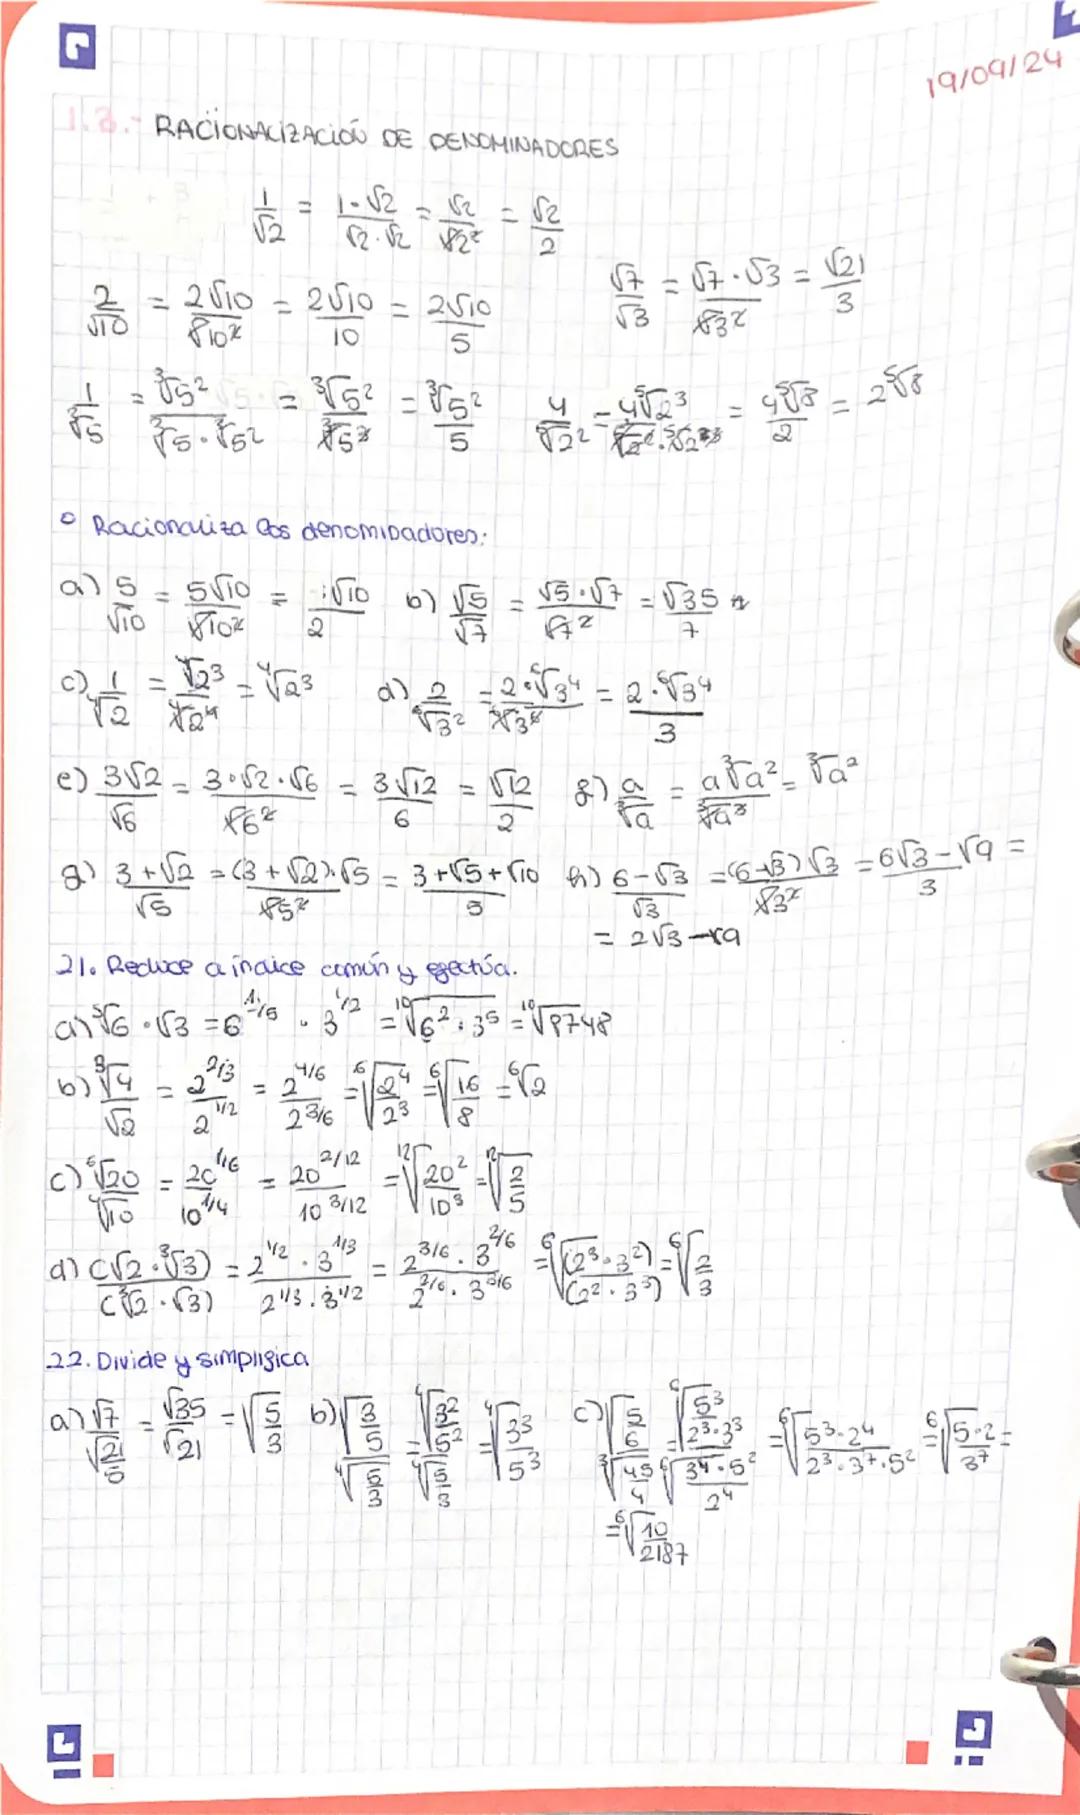 19/09/24
1.3.- RACIONALIZACIÓN DE DENOMINADORES
1/√2 = 1·√2/√2·√2 = √2/√2² = √2/2
√7/√3 = √7·√3/√3² = √21/3
2/√10 = 2√10/√10² = 2√10/10 = 2√10/5
1/∛5 = ∛5²/∛5·∛5² = ∛5²/∛5³ = ∛5²/5
4/⁵√2² = 4⁵√2³/⁵√2²·⁵√2³ = 4⁵√8/2 = 2⁵√8
o Racionaliza los denominadores:
a) 5/√10 = 5√10/√10² = √10/2 b) √5/√7 = √5·√7/√7² = √35/7
c) 1/⁴√2 = ⁴√2³/⁴√2⁴ = ⁴√2³ d) 2/⁶√3² = 2·⁶√3⁴/⁶√3⁶ = 2·⁶√3⁴/3
e) 3√2/√6 = 3·√2·√6/√6² = 3√12/6 = √12/2 f) a/∛a = a∛a²/∛a³ = ∛a²
g) 3+√2/√5 = (3+√2)·√5/√5² = 3+√5+√10/5 h) 6-√3/√3 = (6-√3)√3/√3² = 6√3-√9/3 =
= 2√3-√9
21. Reduce a índice común y efectúa.
a) ⁵√6·√3 = 6^1/5 · 3^1/2 = ¹⁰√6²·3⁵ = ¹⁰√8748
b) ∛4/√2 = 2^2/3/2^1/2 = 2^4/6/2^3/6 = ⁶√2⁴/2³ = ⁶√16/8 = ⁶√2
c) ⁶√20/⁴√10 = 20^1/6/10^1/4 = 20^2/12/10^3/12 = ¹²√20²/10³ = ¹²√2/5
d) (√2·∛3)/(∛2·√3) = 2^1/2·3^1/3/2^1/3·3^1/2 = 2^3/6·3^2/6/2^2/6·3^3/6 = ⁶√(2³·3²)/(2²·3³) = ⁶√2/3
22. Divide y simplifica
a) √7/√21/5 = √35/√21 = √5/3 b) √3/5/⁴√5/3 = ⁴√3²/5²/⁴√5/3 = ⁴√3³/5³ c) √5/6/∛45/4 = ⁶√5³/2³·3³/⁶√3⁴·5²/2⁴ = ⁶√5³·2⁴/2³·3⁷·5² = ⁶√5·2/3⁷ =
= ⁶√10/2187